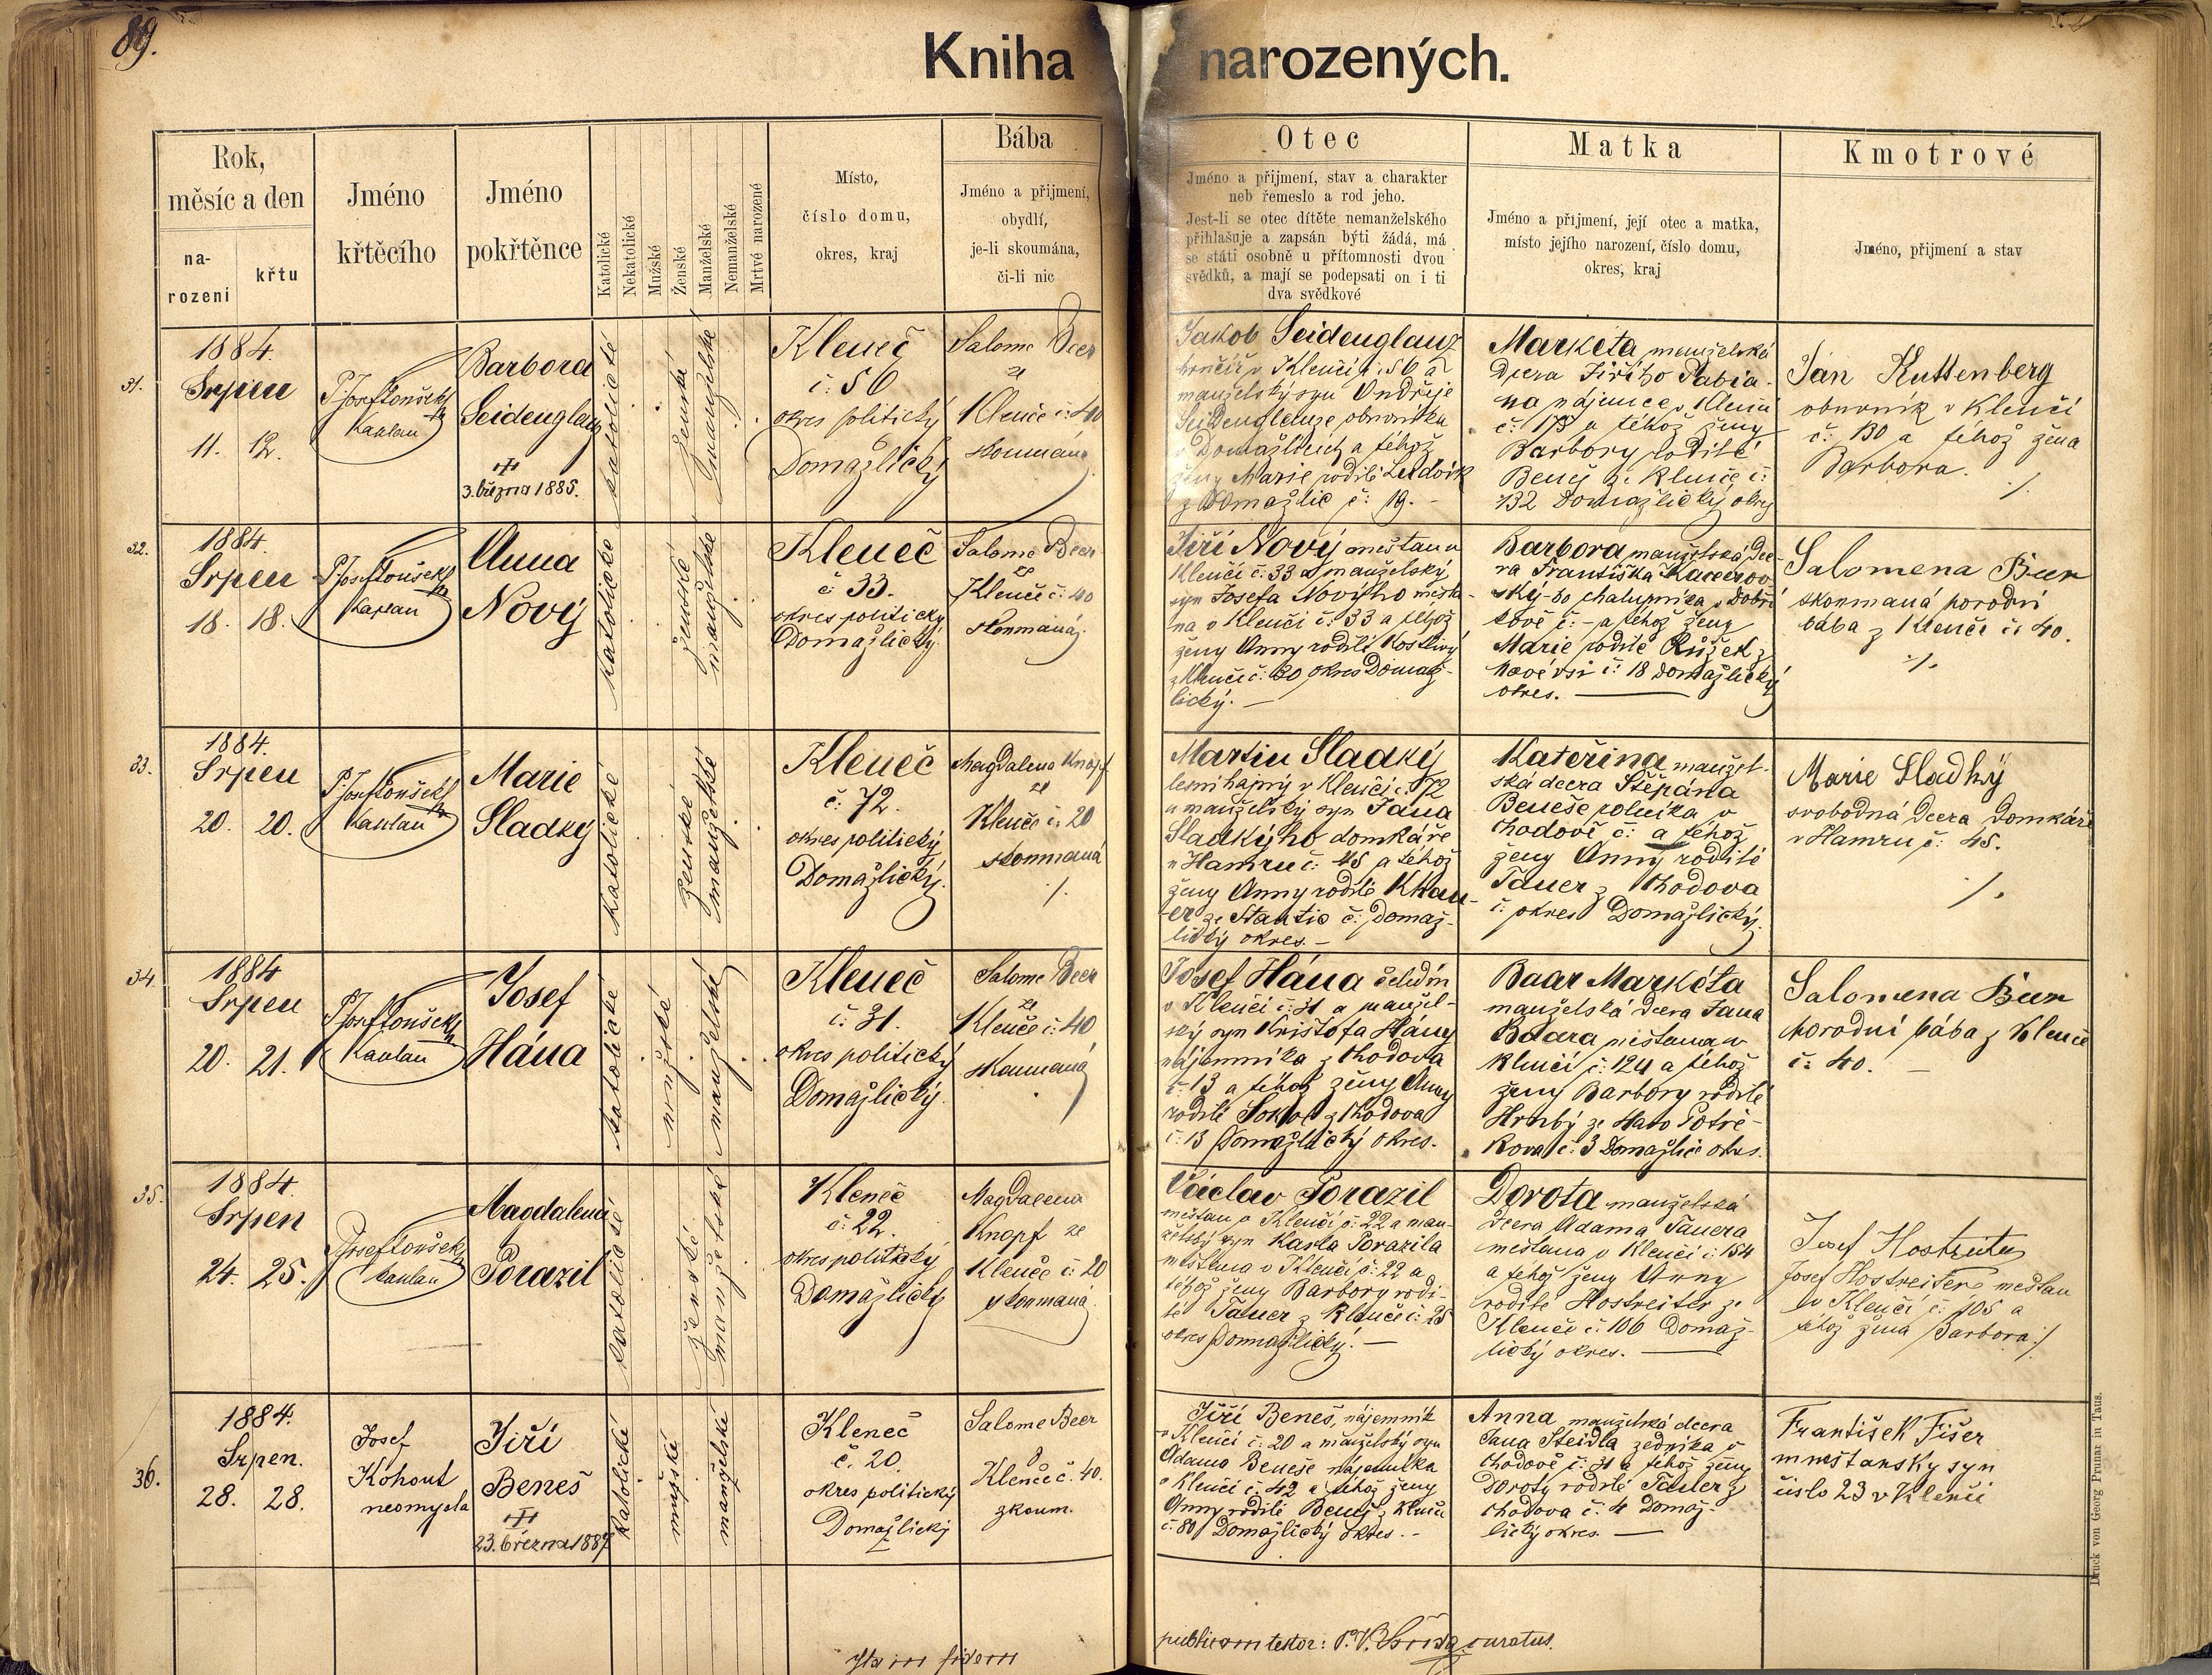 89.
Kniha narozených.
Rok,
měsíc a den
na-
rození
křtu
Jméno
křtěcího
Jméno
pokřtěnce
Katolické
Nekatolické
Mužské
Ženské
Manželské
Nemanželské
Mrtvé narozené
Místo,
číslo domu,
okres, kraj
Bába
Jméno a přijmení,
obydlí,
je-li skoumána,
či-li nic
Otec
Jméno a přijmení, stav a charakter
neb řemeslo a rod jeho.
Jest-li se otec dítěte nemanželského
přihlašuje a zapsán býti žádá, má
se státi osobně u přítomnosti dvou
svědků, a mají se podepsati on i ti
dva svědkové
Matka
Jméno a přijmení, její otec a matka,
místo jejího narození, číslo domu,
okres, kraj
Kmotrové
Jméno, přijmení a stav
31.
1884.
Srpen
11. 12.
P. Josef Toušek
kaplan
Barbora
Seidenglanz
3. března 1885.
katolické
ženské
manželské
Kleneč
č: 56
okres politický
Domažlický
Salome Beer
ze
Klenče č: 40
skoumaná
Jakob Seidenglanz
hrnčíř v Klenčí č: 56 a
manželský syn Ondřeje
Seidenglanze obuvníka
v Domažlicích a téhož
ženy Marie rodilé Ludvík
z Domažlic č: 19. -
Markéta manželská
dcera Jiřího Fabia-
na nájemce v Klenčí
č: 173 a téhož ženy
Barbory rodilé
Beneš ze Klenče č:
132 Domažlický okres
Ján Kuttenberg
obuvník v Klenčí
č: 130 a téhož žena
Barbora.
32.
1884.
Srpen
18. 18.
P. Josef Toušek
kaplan
Anna
Nový
katolické
ženské
manželské
Kleneč
č: 33.
okres politický
Domažlický.
Salome Beer
ze
Klenče č: 40
skoumaná.
Jiří Nový měšťan v
Klenčí č: 33 a manželský
syn Josefa Nového měšťa-
na v Klenčí č: 33 a téhož
ženy Anny rodilé
z Klenčí č: 80 okres Domaž-
lický. -
Barbora manželská dce-
ra Františka
ský-ho chalupníka v
č: - a téhož ženy
Marie rodilé Růžek z
Nové vsi č: 18 domažlický
okres.
Salomena Beer
skoumaná porodní
bába z Klenče č: 40.
33.
1884.
Srpen
20. 20.
P. Josef Toušek
kaplan
Marie
Sladký
katolické
ženské
manželské
Kleneč
č: 72.
okres politický
Domažlický.
Magdalena Knopf
ze
Klenče č: 20
skoumaná
Martin Sladký
lesní hajný v Klenčí č: 72
a manželský syn Jana
Sladkýho domkáře
v Hamru č: 45 a téhož
ženy Anny rodilé
ze č: Domaž-
lický okres. -
Kateřina manžel-
ská dcera Štěpána
Beneše v
Chodově č: a téhož
ženy Anny rodilé
Tauer z Chodova
č: okres Domažlický.
Marie Sladký
svobodná dcera domkáře
v Hamru č: 45.
34.
1884
Srpen
20. 21.
P. Josef Toušek
kaplan
Josef
Hána
katolické
mužské
manželské
Kleneč
č: 31.
okres politický
Domažlický.
Salome Beer
ze
Klenče č: 40
skoumaná
Josef Hána čeledín
v Klenčí č: 31 a manžel-
ský syn Krištofa Hány
nájemníka z Chodova
č: 13 a téhož ženy Anny
rodilé Sokol z Chodova
č: 13 Domažlický okres.
Baar Markéta
manželská dcera Jana
Baara měšťana v
Klenčí č: 124 a téhož
ženy Barbory rodilé
Hrubý ze
č: 3 Domažlic okres.
Salomena Beer
porodní bába z Klenče
č: 40.
35.
1884.
Srpen
24. 25.
P. Josef Toušek
kaplan
Magdalena
Porazil
katolické
ženské.
manželské
Kleneč
č: 22.
okres politický
Domažlický
Magdalena
Knopf ze
Klenče č: 20
skoumaná.
Václav Porazil
měšťan v Klenčí č: 22 a man-
želský syn Karla Porazila
měšťana v Klenčí č: 22 a
téhož ženy Barbory rodi-
lé Tauer z Klenče č: 25
okres Domažlický. -
Dorota manželská
dcera Adama Tauera
měšťana v Klenčí č: 154
a téhož ženy Anny
rodilé Hostreiter ze
Klenčí č: 106 Domaž-
lický okres.
Josef Hostreiter
Josef Hostreiter měšťan
v Klenčí č: 105 a
téhož žena Barbora
36.
1884.
Srpen.
28. 28.
Josef
Kohout
neomysta
Jiří
Beneš
23. března 1887
Katolické
mužské
manželské
Kleneč
č. 20.
okres politický
Domažlický
Salome Beer
Klenče č. 40.
zkoum.
Jiří Beneš, nájemník
v Klenčí č: 20 a manželský syn
Adama Beneše nájemníka
v Klenčí č: 42 a téhož ženy
Anny rodilé Beneš z Klenče
č: 80 Domažlický okres. -
Anna manželská dcera
Jana Steidla zedníka v
Chodově č: 31 a téhož ženy
Doroty rodilé Tauer z
Chodova č: 4 Domaž-
lický okres.
František Fišer
mnešťansky syn
číslo 23 v Klenčí
publicam testor: P. V. curatus.
Druck von Georg Prunar in Taus.